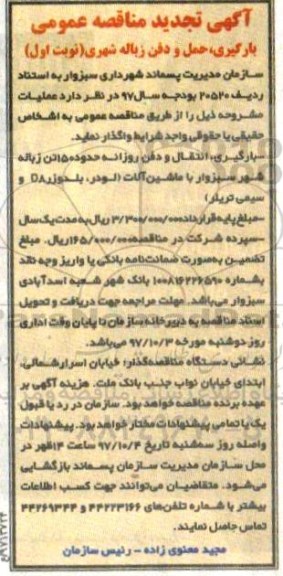 آگهی تجدید مناقصه عمومی
بارگیری،حمل و دفن زباله شهری(نوبت اول)
سازمان مدیریت پسماند شهرداری سبزوار به استناد
ردیف ۲۰۵۲۰ بودجه سال۹۷ در نظر دارد عملیات
مشروحه ذیل را از طریق مناقصه عمومی به اشخاص
حقیقی یا حقوقی واجد شرایط واگذار نماید.
-بارگیری، انتقال و دفن روزانه حدود۱۵۰تن زباله
شهر سبزوار با ماشین‌آلات (لودر، بلدوزرD۸ و
سیمی تریلر)
-مبلغ پایه قرارداد۳/۳۰۰/۰۰۰/۰۰۰ ریال به مدت یکسال
-سپرده شرکت در مناقصه۱۶۵/۰۰۰/۰۰۰ریال. مبلغ
تضمین بصورت ضمانت‌نامه بانکی یا واریز وجه نقد
بشماره ۱۰۰۸۱۶۲۲۶۵۹۰ بانک شهر شعبه اسدآبادی
سبزوار می‌باشد. مهلت مراجعه جهت دریافت و تحویل
اسناد مناقصه به دبیرخانه سازمان تا پایان وقت اداری
روز دوشنبه مورخه ۹۷/۱۰/۳ می‌باشد.
نشانی دستگاه مناقصه‌گذار: خیابان اسرارشمالی،
ابتدای خیابان نواب جنب بانک ملت. هزینه آگهی بر
عهده برنده مناقصه خواهد بود. سازمان در رد یا قبول
یک یا تمامی پیشنهادات مختار خواهد بود. پیشنهادات
واصله روز سه‌شنبه تاریخ ۹۷/۱۰/۴ ساعت ۱۴ظهر در
محل سازمان مدیریت سازمان پسماند بازگشایی
می‌شود. متقاضیان می‌توانند جهت کسب اطلاعات
بیشتر با شماره تلفن‌های ۴۴۲۲۳۱۶۶ و ۴۴۲۶۹۳۴۴
تماس حاصل نمایند.
مجید معنوی زاده - رئیس سازمان